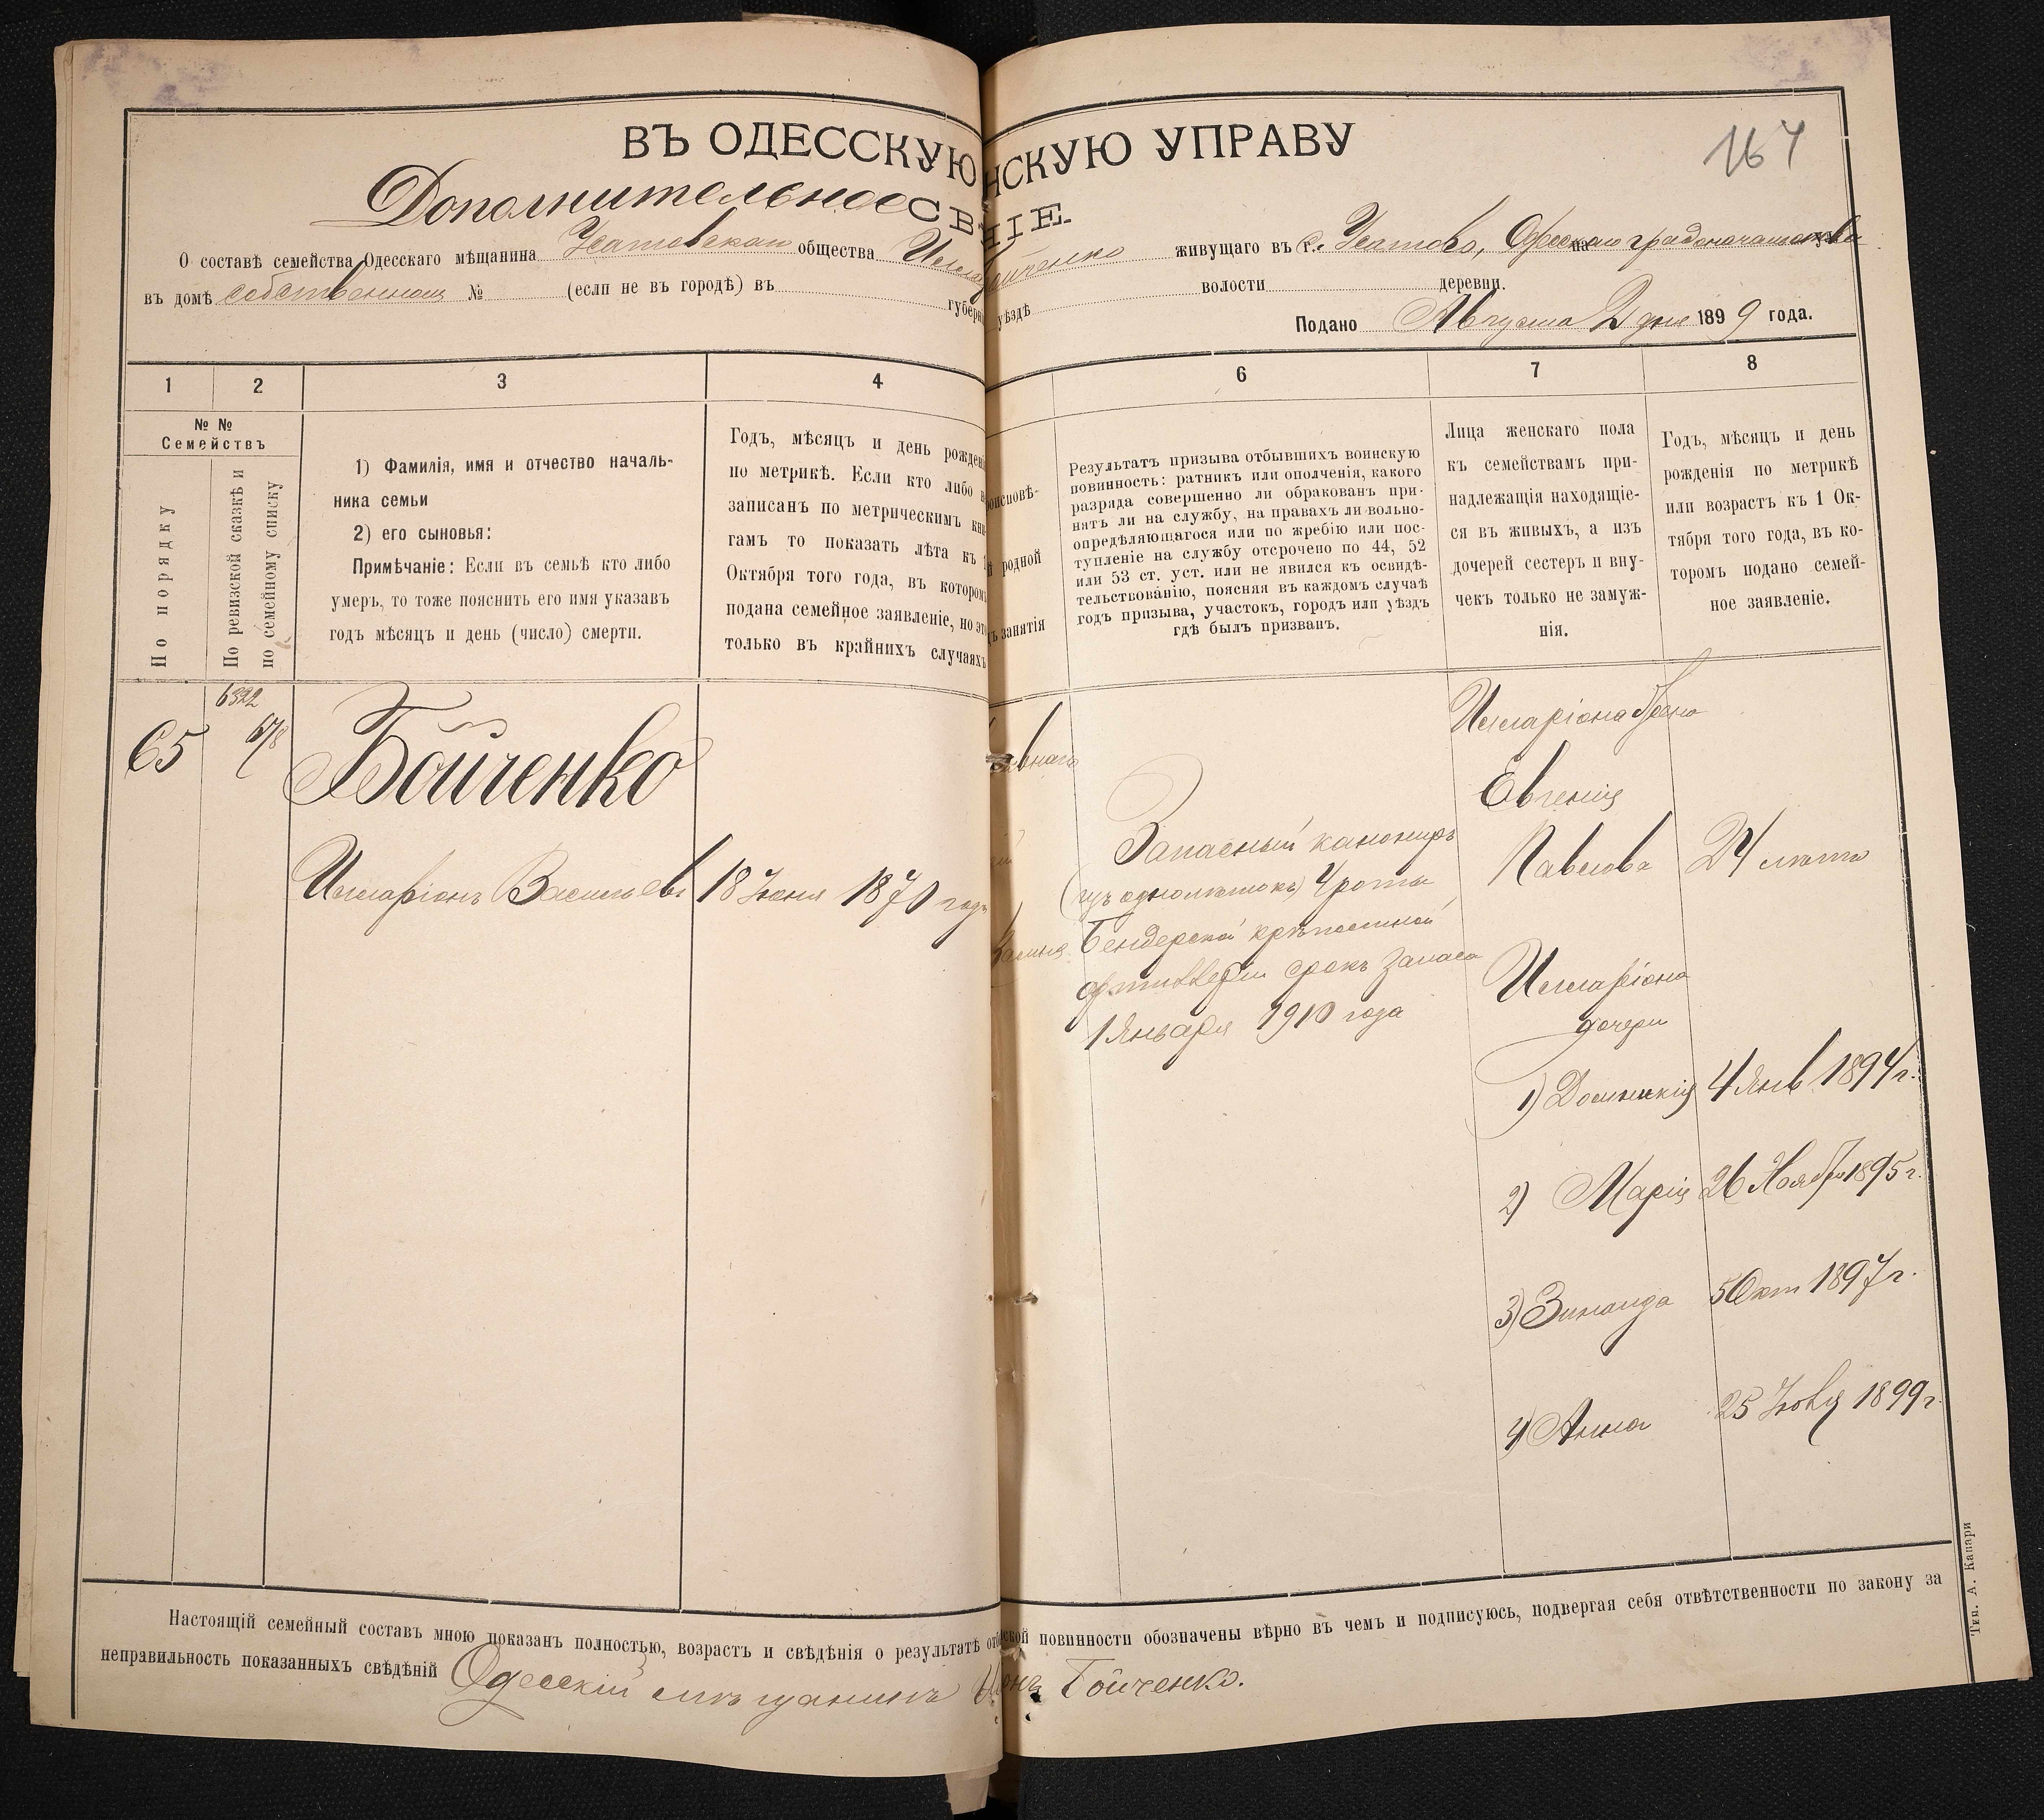 167
ВЪ ОДЕССКУЮ НСКУЮ УПРАВУ
Дополнительное СВ НІЕ.
О составѣ семейства Одесскаго мѣщанина Усатовскаго общества Илла йченко живущаго въ с. Усатово, Одесскаго градоначальства
въ домѣ собственном № (если не въ городѣ) въ губерн уѣздѣ волости деревни.
Подано Августа 2 дня 1899 года.
1 2 3 4 6 7 8
№ №
Семействъ
По порядку
По ревизской сказкѣ и
по семейному списку
1) Фамилія, имя и отчество началь-
ника семьи
2) его сыновья:
Примѣчаніе: Если въ семьѣ кто либо
умеръ, то тоже пояснить его имя указавъ
годъ мѣсяцъ и день (число) смерти.
Годъ, мѣсяцъ и день рожден
по метрикѣ. Если кто либо н
записанъ по метрическимъ кни
гамъ то показать лѣта къ 1
Октября того года, въ которомъ
подана семейное заявленіе, но это
только въ крайнихъ случаяхъ
оисповѣ-
родной
занятія
Результатъ призыва отбывшихъ воинскую
повинность: ратникъ или ополченія, какого
разряда совершенно ли обракованъ при-
нятъ ли на службу, на правахъ ли вольно-
опредѣляющагося или по жребію или пос-
тупленіе на службу отсрочено по 44, 52
или 53 ст. уст. или не явился къ освидѣ-
тельствованію, поясняя въ каждомъ случаѣ
годъ призыва, участокъ, городъ или уѣздъ
гдѣ былъ призванъ.
Лица женскаго пола
къ семействамъ при-
надлежащія находящіе-
ся въ живыхъ, а изъ
дочерей сестеръ и вну-
чекъ только не замуж-
нія.
Годъ, мѣсяцъ и день
рожденія по метрикѣ
или возрастъ къ 1 Ок-
тября того года, въ ко-
торомъ подано семей-
ное заявленіе.
65
6322
678
Бойченко
Илларіонъ Васильевъ 18 Іюня 1870 года
Запасный канониръ
4 роты
Бендерской крѣпостной
артиллеріи срокъ запаса
1 Января 1910 года
Илларіона жена
Евгенія
Павлова 24 лѣтъ
Илларіона
дочери
1) Домникія 4 Янв 1894 г.
2) Марія 26 Ноября 1895 г.
3) Зинаида 5 Окт 1897 г.
4) Анна 25 Іюля 1899 г.
Настоящій семейный составъ мною показанъ полностью, возрастъ и свѣдѣнія о результатѣ отб ской повинности обозначены вѣрно въ чемъ и подписуюсь, подвергая себя отвѣтственности по закону за
неправильность показанныхъ свѣдѣній Одесскій мѣщанинъ И онъ Бойченко.
Тип. А. Капари